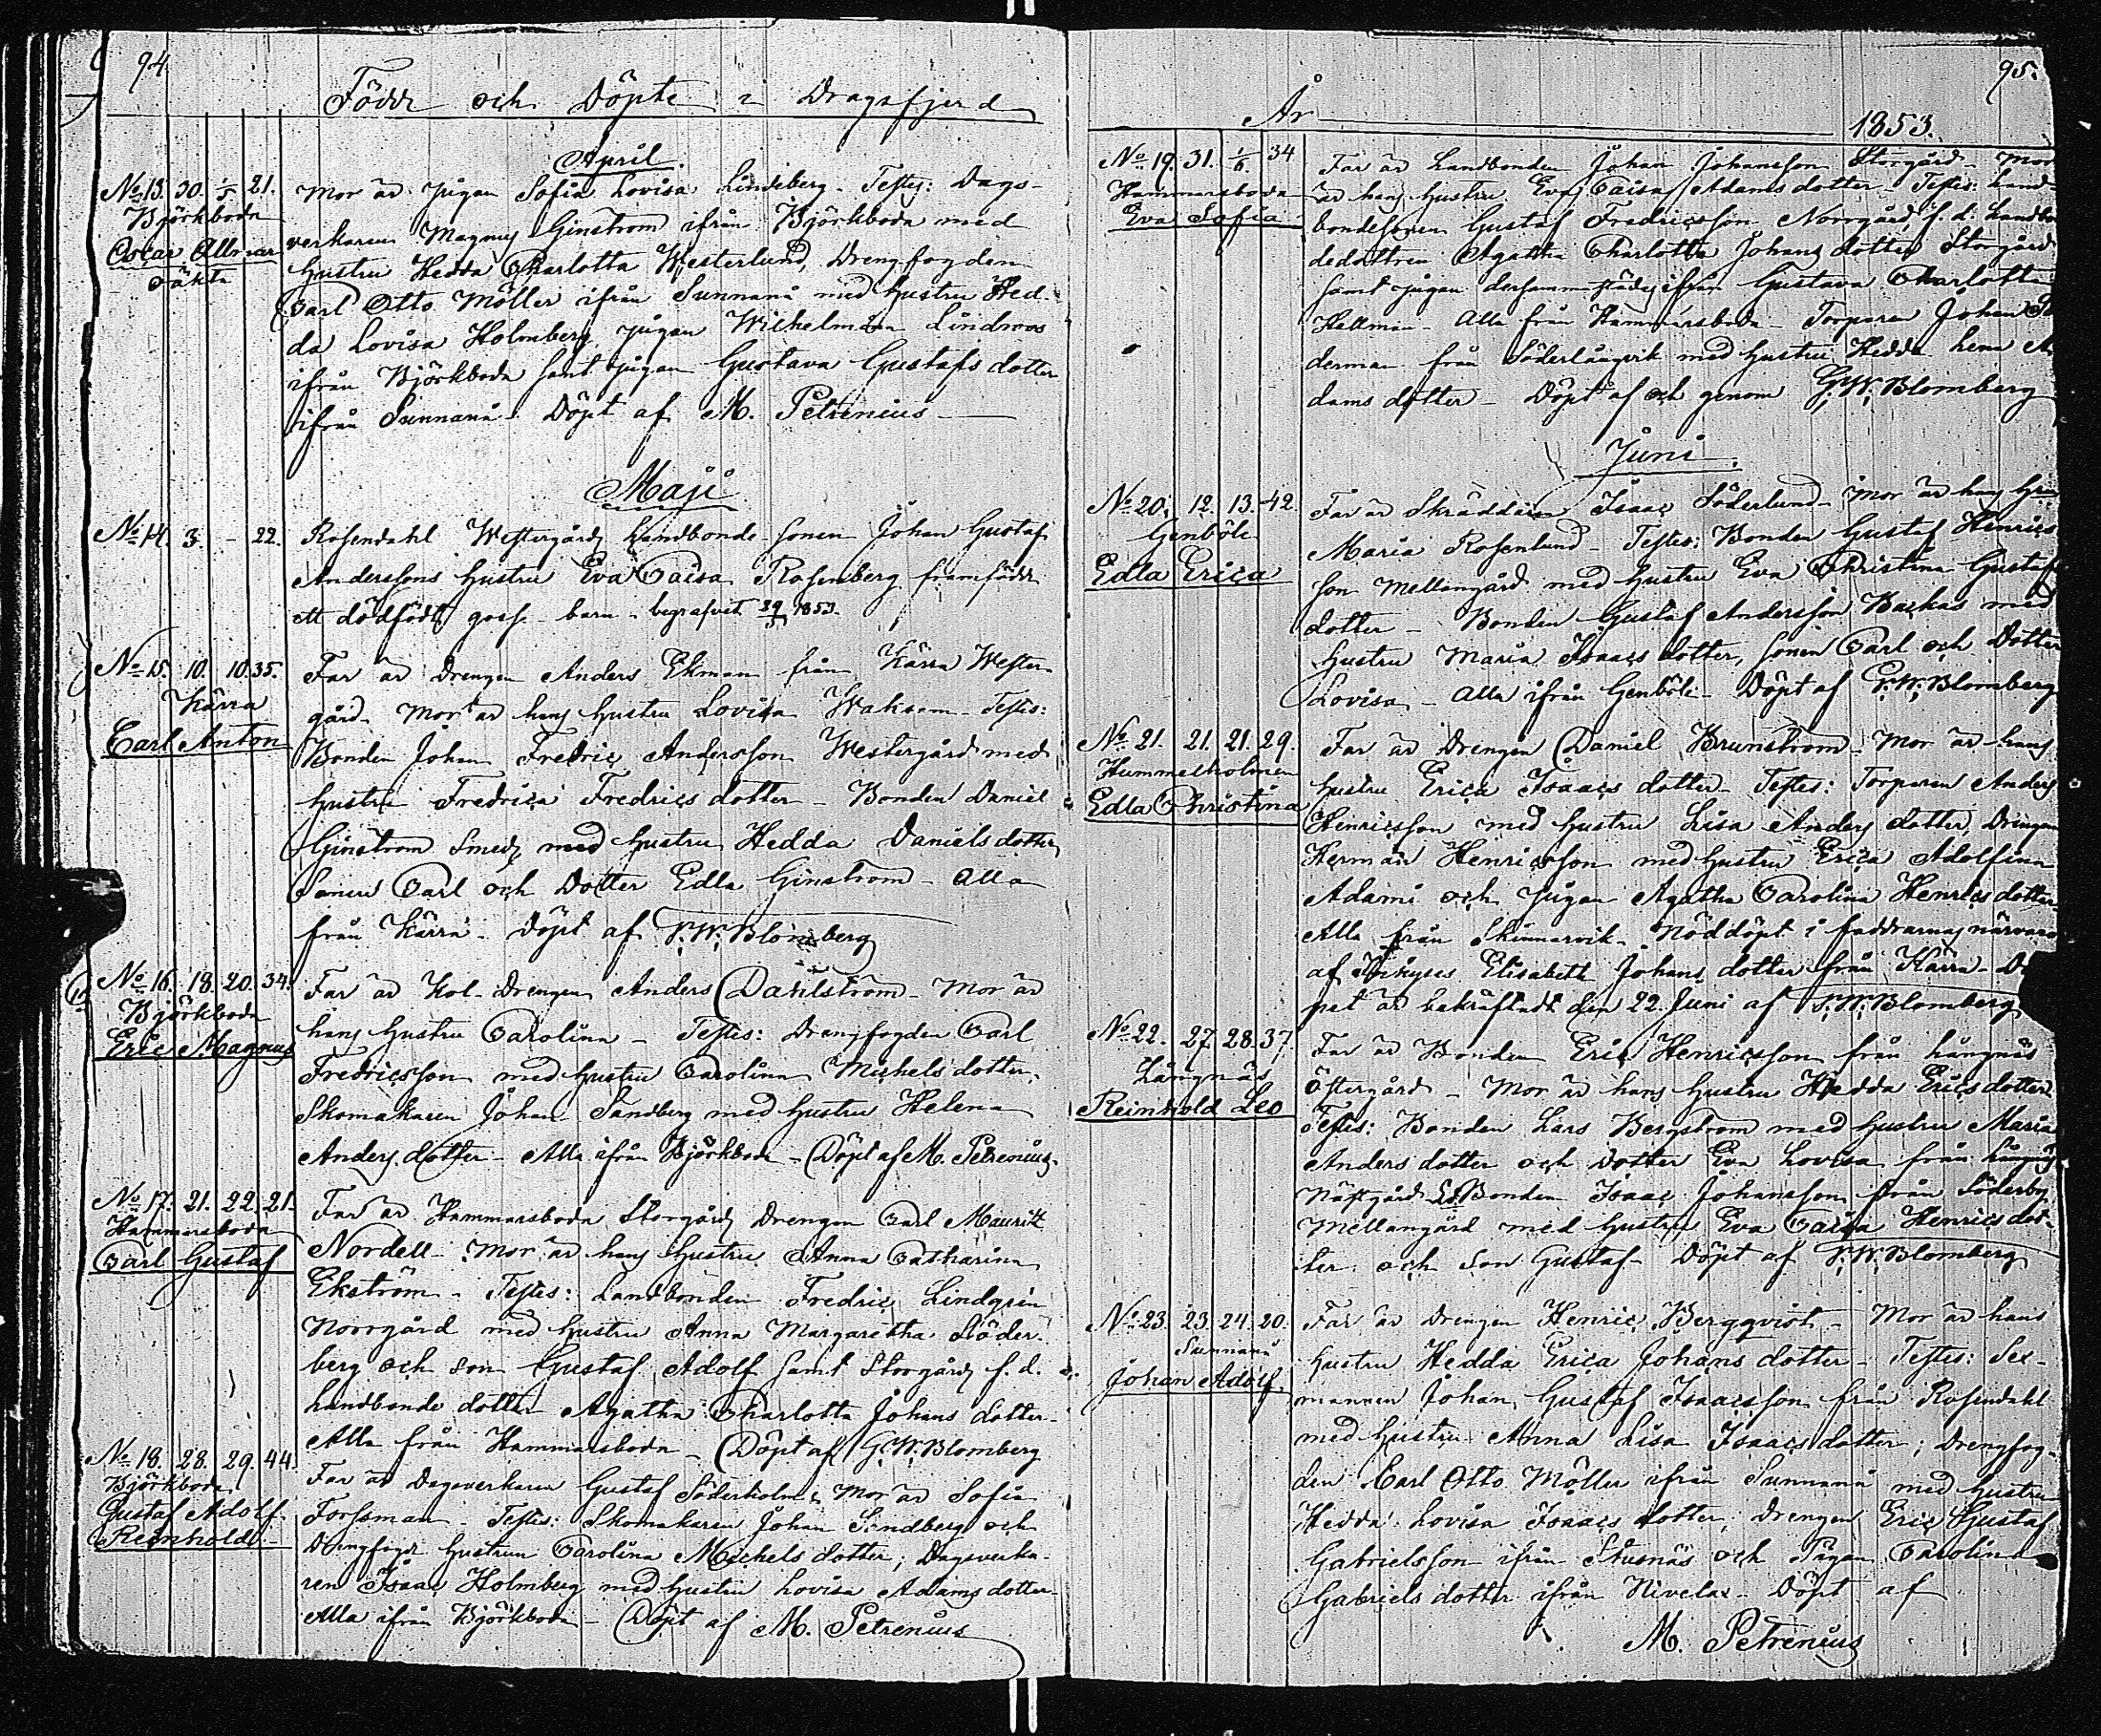 94
Född och Döpte i Dragsfjerd
April.
No 13. 30. 1/5 21. Mor är pigan Sofia Lovisa Lindeberg - Testes: Dags-
Björkboda verkaren Magnus Ginström ifrån Björkboda med
Oscar hustru Hedda Charlotta Westerlund, Drengfogden
oäkta Carl Otto Möller ifrån Sunnanå med hustru Hed-
da Lovisa Holmberg, pigan Wilhelmina Lindroos
ifrån Björkboda samt pigan Gustava Gustafs dotter
ifrån Sunnanå - Döpt af M. Petrenius
Maji
No 14. 3. - 22. Rosendahl Westergårds Landbonde sonen Johan Gustaf
Anderssons hustru Eva Caisa Rosenberg framfödde
ett dödfödt gosse-barn - begrafvet 1853.
No 15. 10. 10. 35. Far är Drengen Anders Ekman från Kärra Wester-
Kärra gård - Mor är hans hustru Lovisa - Testes:
Carl Anton Bonden Johan Fredric Andersson Westergård med
hustru Fredrica Fredrics dotter - Bonden Daniel
Ginström Smeds med hustru Hedda Daniels dotter,
Sonen Carl och Dotter Edla Ginström - Alla
från Kärra - Döpt af G. W. Blomberg
No 16. 18. 20. 34. Far är Kol-drengen Anders Dahlström - Mor är
Björkboda hans hustru Carolina - Testes: Drengfogden Carl
Eric Magnus Fredricsson med hustru Carolina Michels dotter,
Skomakaren Johan Sandberg med hustru Helena
Anders dotter - Alla ifrån Björkboda - Döpt af M. Petrenius.
No 17. 21. 22. 21. Far är Hammarsboda Storgårds Drengen Carl Mauritz
Hammarsboda Nordell - Mor är hans hustru Anna Catharina
Carl Gustaf Ekström - Testes: Landbonden Fredric Lindgrén
Norrgård med hustru Anna Margaretha Söder-
berg och son Gustaf Adolf samt Storgårds f. d.
Landbonde dotter Agatha Charlotta Johans dotter -
Alla från Hammarsboda - Döpt af G. W. Blomberg
No 18. 28. 29. 44. Far är Dagsverkaren Gustaf Söderholm, Mor är Sofia
Björkboda Forssman - Testes: Skomakaren Johan Sandberg och
Gustaf Adolf Drengfogde hustrun Carolina Michels dotter; Dagsverka-
Reinhold - ren Isaac Holmberg med hustru Lovisa Adams dotter -
Alla ifrån Björkboda - Döpt af M. Petrenius
95.
År 1853.
No 19. 31. 1/6 34 Far är Landbonden Johan Johansson Storgård - Mor
Hammarsboda är hans hustru Eva Caisa Adams dotter - Testes: Land-
Eva Sofia bondesonen Gustaf Fredricsson Norrgård, f. d. Landbon
dedottren Agatha Charlotta Johans dotter Storgård
samt pigan dersammastädes ifrån Gustava Charlotta
Hellman - Alla från Hammarsboda - Torparen Johan
derman från Söderlångvik med hustru Hedda Lena A
dams dotter - Döpt af och genom G. W. Blomberg
Juni.
No 20. 12. 13. 42. Far är Skräddaren Isaac Söderlund - Mor är hans
Genböle Maria Rosenlund - Testes: Bonden Gustaf Henrics-
Edla Erica son Mellangård med hustru Eva Christina Gustafs
dotter - Bonden Gustaf Andersson Backas med
hustru Maria Isaacs dotter, sonen Carl och Dotter
Lovisa - Alla ifrån Genböle - Döpt af G. W. Blomberg
No 21. 21. 21. 29. Far är Drengen Daniel Brunström - Mor är hans
Hummelholmen hustru Erica Isaacs dotter - Testes: Torparen Anders
Edla Christina Henricsson med hustru Lisa Anders dotter, Drengen
Herman Henricsson med hustru Erica Adolfina
Adami och pigan Agatha Carolina Henrics dotter -
Alla från Skinnarvik - Nöddöpt i faddrarnas närvaro
af Elisabeth Johans dotter från Kärra - Do
pet är bekräftadt den 22. Juni af G. W. Blomberg
No 22. 27. 28. 37. Far är Bonden Eric Henricsson från Långnäs
Långnäs Östergård - Mor är hans hustru Hedda Erics dotter
Reinhold Leo Testes: Bonden Lars Bergström med hustru Maria
Anders dotter och dotter Eva Lovisa från Långnäs
Bonden Isaac Johansson från Söderby
Mellangård med hustru Eva Caisa Henrics dot-
ter och son Gustaf - Döpt af G. W. Blomberg
No 23. 23. 24. 20. Far är Drengen Henric Bergqvist - Mor är hans
Sunnanå hustru Hedda Erica Johans dotter - Testes: Sex-
Johan Adolf mannen Johan Gustaf Isaacsson från Rosendahl
med hustru Anna Lisa Isaacs dotter; Drengfog-
den Carl Otto Möller ifrån Sunnanå med hustru
Hedda Lovisa Isaacs dotter; Drengen Eric Gustaf
Gabrielsson ifrån Stusnäs och Pigan Carolina
Gabriels dotter ifrån Nivelax - Döpt af
M. Petrenius